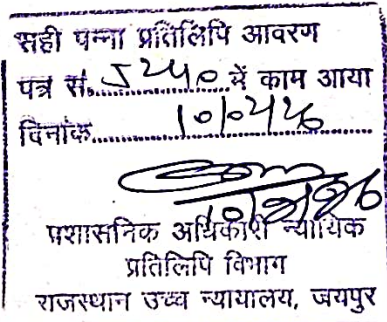 सही पन्ना प्रतिलिपि आवरण
पत्र सं. 5240 में काम आया
दिनांक
प्रशासनिक अधिकारी न्यायिक
प्रतिलिपि विभाग
राजस्थान उच्च न्यायालय, जयपुर